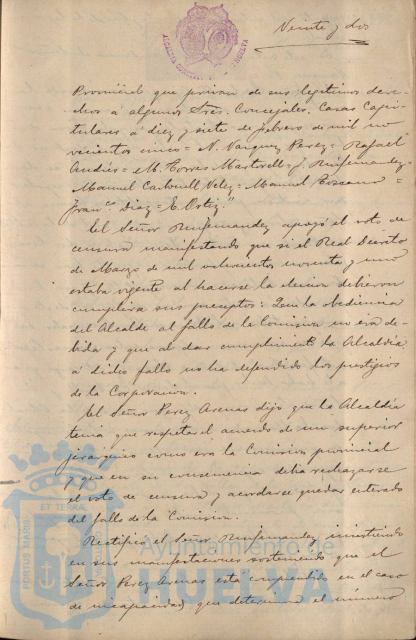 Veinte y dos
Provincial que privan de sus legítimos dere-
chos a algunos Sres. Concejales. Casas Capi-
tulares a diez y siete de febrero de mil no-
vecientos cinco = N. Vazquez Perez = Rafael
Andrés = M. Torres Martorell = J. Ruifernandez =
Manuel Carbonell Velez = Manuel =
Franco. Diaz = E. Ortiz."
El Señor Ruifernandez apoyó el voto de
censura manifestando que si el Real Decreto
de Marzo de mil ochocientos noventa y uno
estaba vigente al hacerse la elección debieron
cumplirse sus preceptos: Que la obediencia
del Alcalde al fallo de la Comision no era de-
bida y que al dar cumplimiento la Alcaldia
a dicho fallo no ha defendido los prestigios
de la Corporacion.
El Señor Perez Arenas dijo que la Alcaldia
tenia que respetar el acuerdo de un superior
jerarquico como era la Comision provincial
y que en su consecuencia debia rechazarse
el voto de censura y acordarse quedar enterado
del fallo de la Comision.
Rectificó el Señor Ruifernandez insistiendo
en sus manifestaciones sosteniendo que el
Señor Perez Arenas está comprendido en el caso
de incapacidad que determina el número
PORTUS MARIS ET TERRAE
Ayuntamiento de
HUELVA
HUELVA